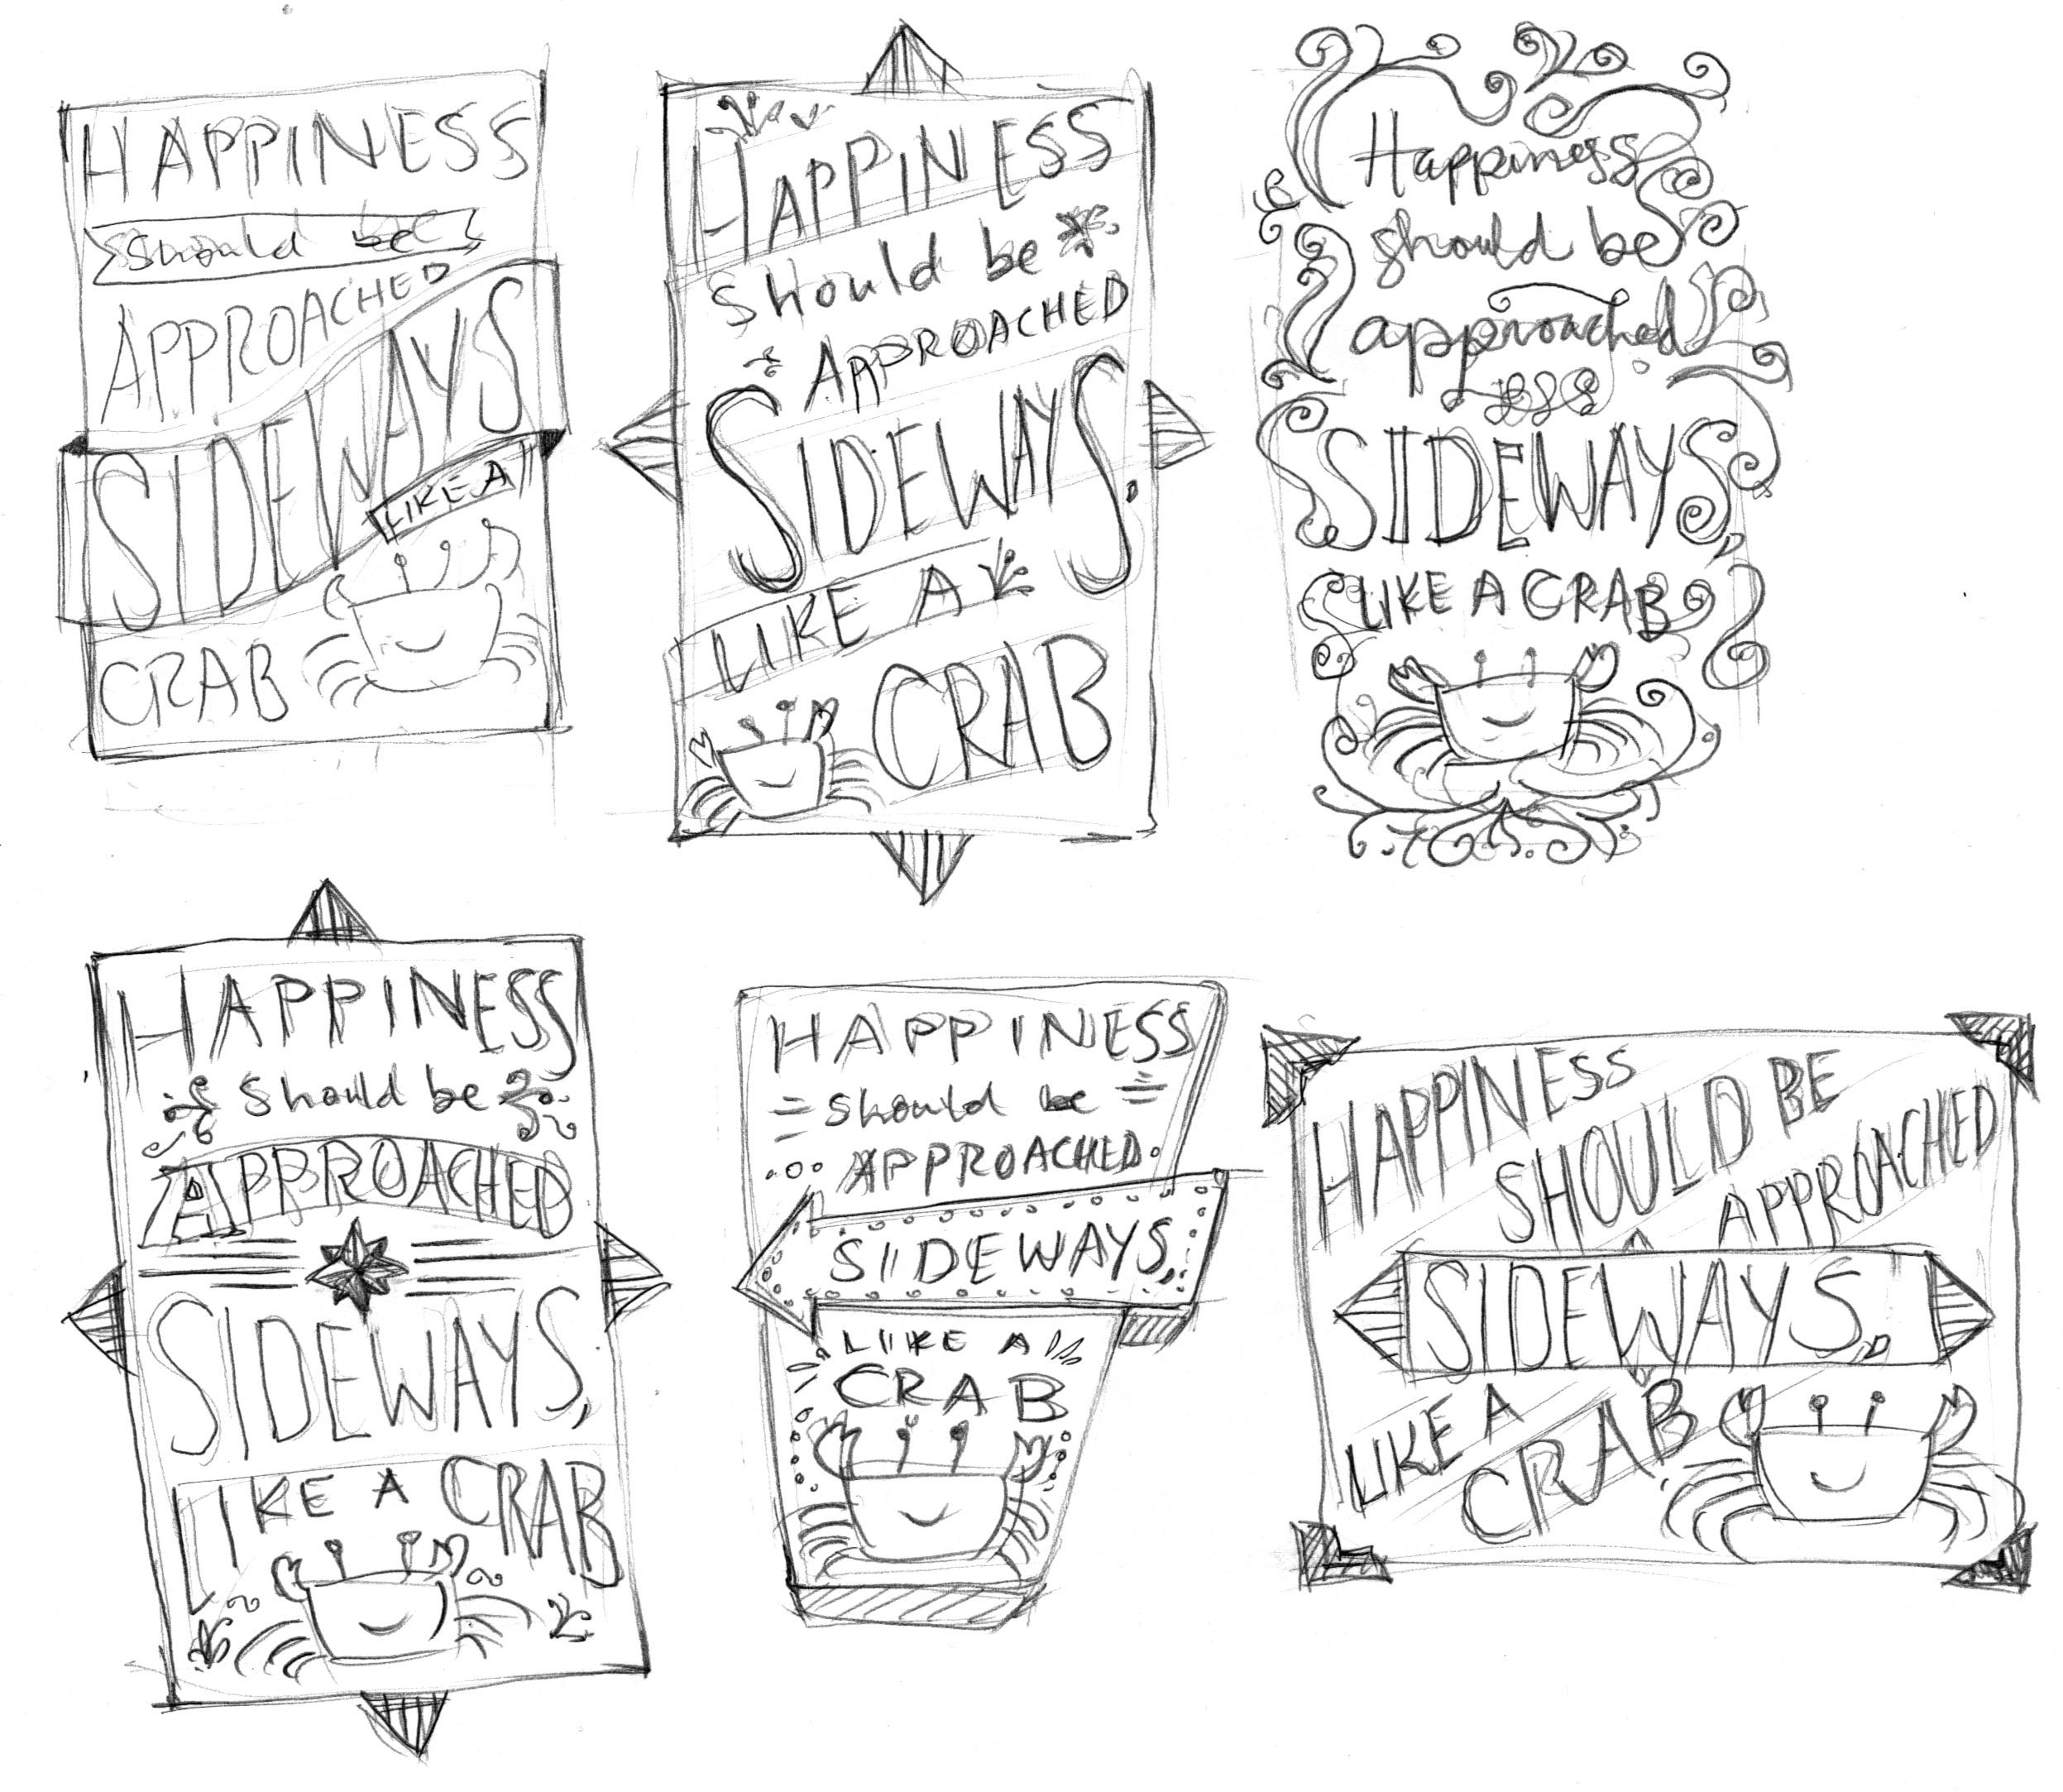 HAPPINESS
should be
APPROACHED
SIDEWAYS
LIKE A
CRAB
HAPPINESS
should be
APPROACHED
SIDEWAYS.
LIKE A
CRAB
Happiness
should be
approached
SIDEWAYS,
LIKE A CRAB
HAPPINESS
should be
APPROACHED
SIDEWAYS,
LIKE A CRAB
HAPPINESS
should be
APPROACHED
SIDEWAYS,
LIKE A
CRAB
HAPPINESS
SHOULD BE
APPROACHED
SIDEWAYS,
LIKE A
CRAB